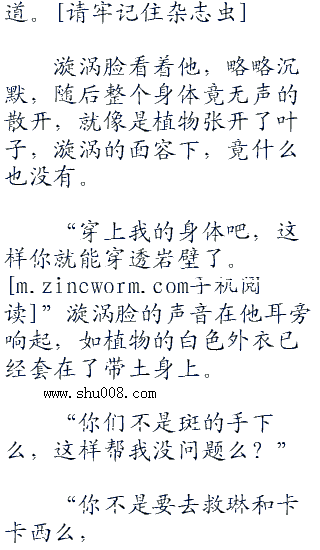 道。[请牢记住杂志虫]
漩涡脸看着他，略略沉
默，随后整个身体竟无声的
散开，就像是植物张开了叶
子，漩涡的面容下，竟什么
也没有。
“穿上我的身体吧，这
样你就能穿透岩壁了。
[m.zincworm.com手机阅
读]”漩涡脸的声音在他耳旁
响起，如植物的白色外衣已
经套在了带土身上。
www.shu008.com
“你们不是斑的手下
么，这样帮我没问题么？”
“你不是要去救琳和卡
卡西么，